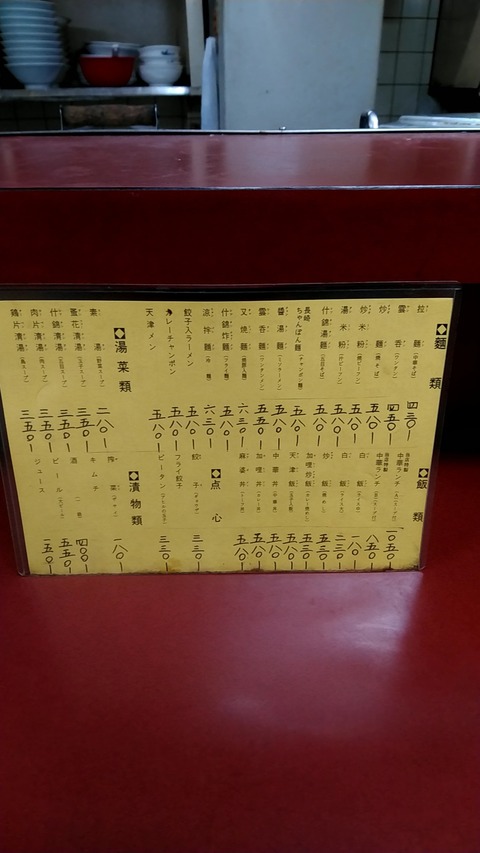 ◆麺類
拉麺(中華そば) 四三〇ー
雲呑(ワンタン) 四五〇ー
炒麺(焼そば) 五八〇ー
炒米粉(焼ビーフン) 五八〇ー
湯米粉(汁ビーフン) 五八〇ー
什錦湯麺(五目そば) 五八〇ー
長崎ちゃんぽん麺(チャンポン麺) 五八〇ー
醬湯麺
雲呑麺(ワンタンメン) 五五〇ー
叉焼麺 六三〇ー
什錦炸麺(フライ麺) 五八〇ー
涼拌麺(冷麺) 六三〇ー
餃子入ラーメン 五八〇ー
カレーチャンポン 五八〇ー
天津メン 五八〇ー
◆湯菜類
素湯(野菜スープ) 二八〇ー
蛋花湯(玉子スープ) 三五〇ー
什錦湯(五目スープ) 三五〇ー
肉片湯(肉スープ) 三五〇ー
鶏片湯(鳥スープ) 三五〇ー
◆飯類
当店特製 中華ランチ 一〇五〇ー
当店特製 中華ランチ 八五〇ー
白飯 一八〇ー
白飯 二三〇ー
炒飯(焼めし) 五三〇ー
加哩炒飯(カレー焼めし) 五五〇ー
天津飯 五八〇ー
中華丼(中華丼) 五八〇ー
加哩丼 五八〇ー
麻婆丼 五八〇ー
◆点心
餃子(ギョウザ) 三三〇ー
フライ餃子
ピータン 三三〇ー
◆漬物類
搾菜(ザーサイ) 一八〇ー
キムチ
酒(一合) 四〇〇ー
ビール 五五〇ー
ジュース 二五〇ー